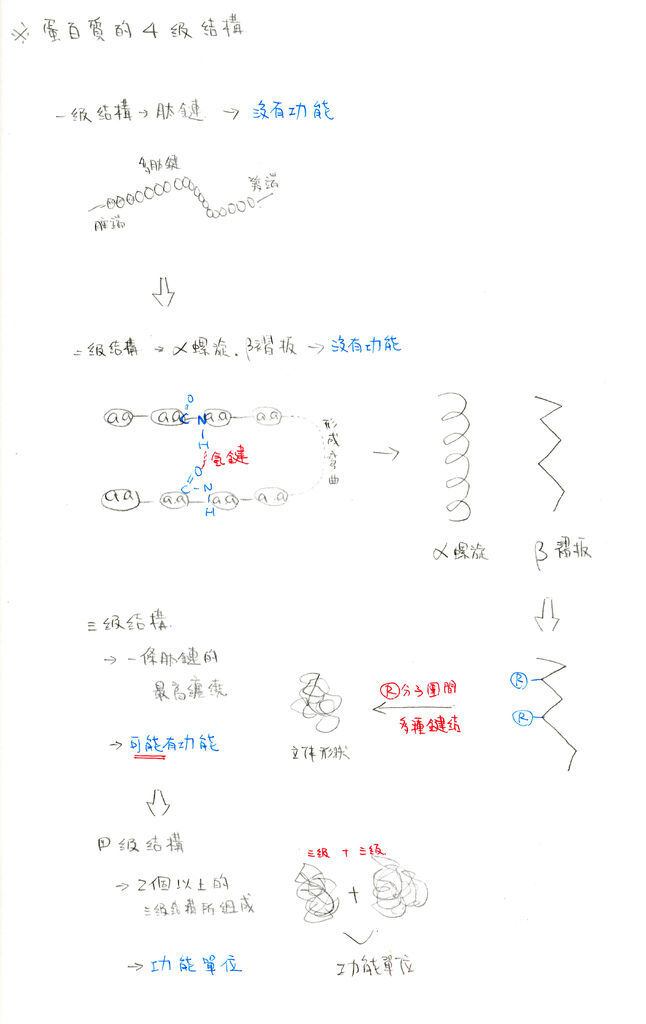 ※ 蛋白質的4級結構
一級結構→肽鏈 → 沒有功能
多肽鏈
羧端
胺端
二級結構 → α螺旋.β褶板 → 沒有功能
O
aa aa C N aa aa
H
氫鍵
形成彎曲
O
C N
aa aa aa aa
H
α螺旋 β褶板
三級結構
→ 一條肽鏈的
最高纏繞
R
R分子團間
多種鍵結
R
→ 可能有功能
立体形狀
四級結構
三級 + 三級
→ 2個以上的
三級結構所組成
+
→ 功能單位
功能單位